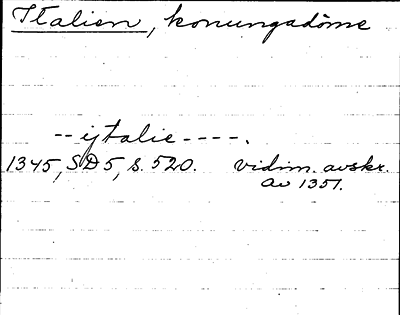 Italien, konungadöme
-- ijtalie ----.
1345, SD5, s. 520. vidim. avskr.
av 1351.